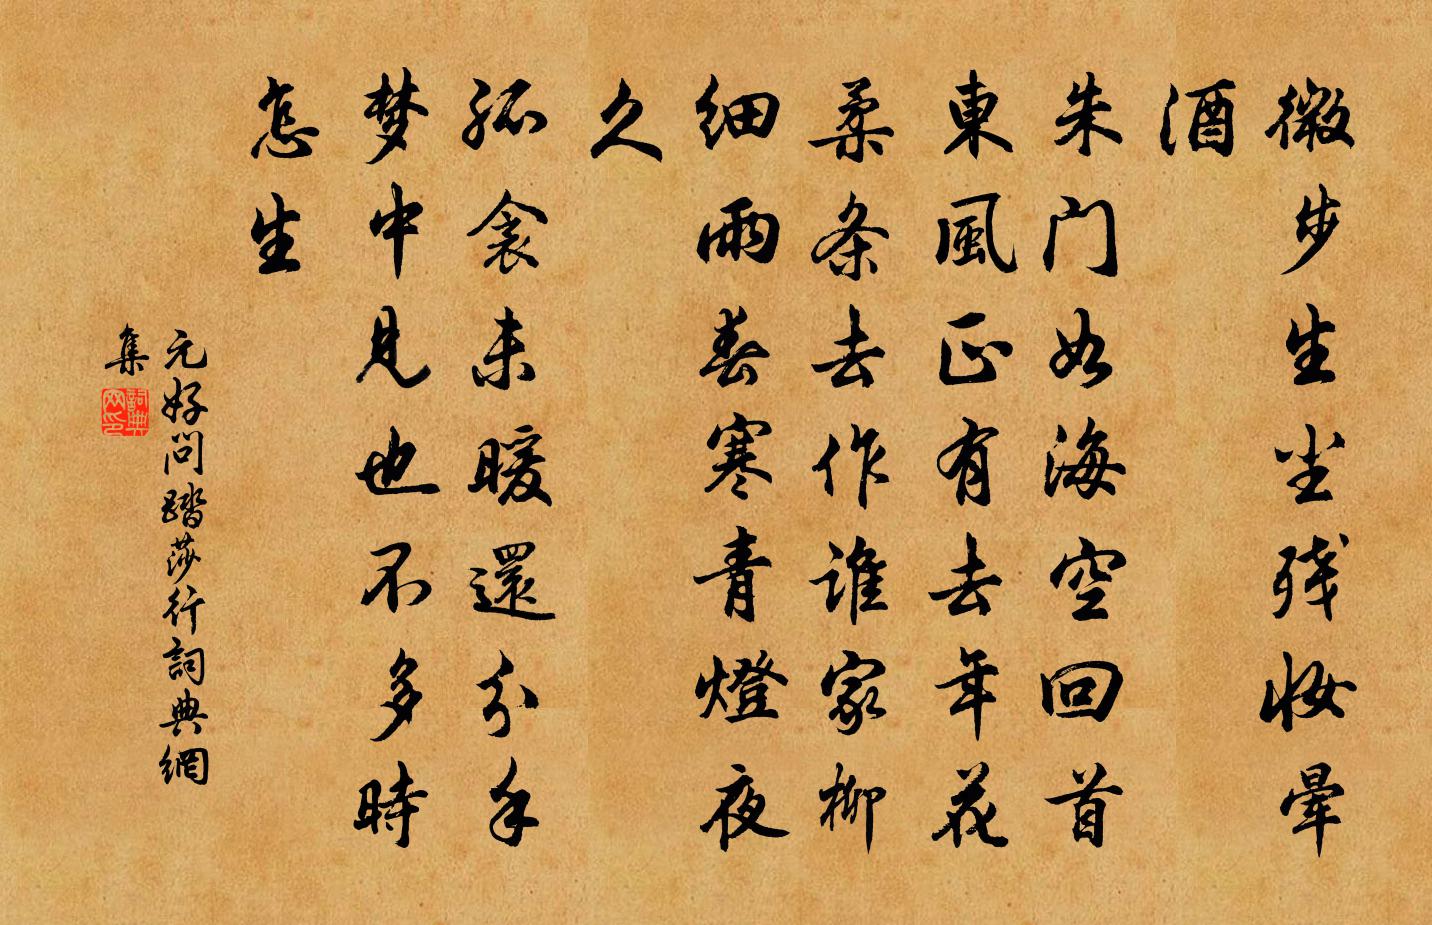 微步生尘残妆晕
酒
朱门如海空回首
東風正有去年花
柔条去作谁家柳
细雨春寒青燈夜
久
孤衾未暖還分手
梦中见也不多時
怎生
元好问踏莎行詞典網
集
詞典网印